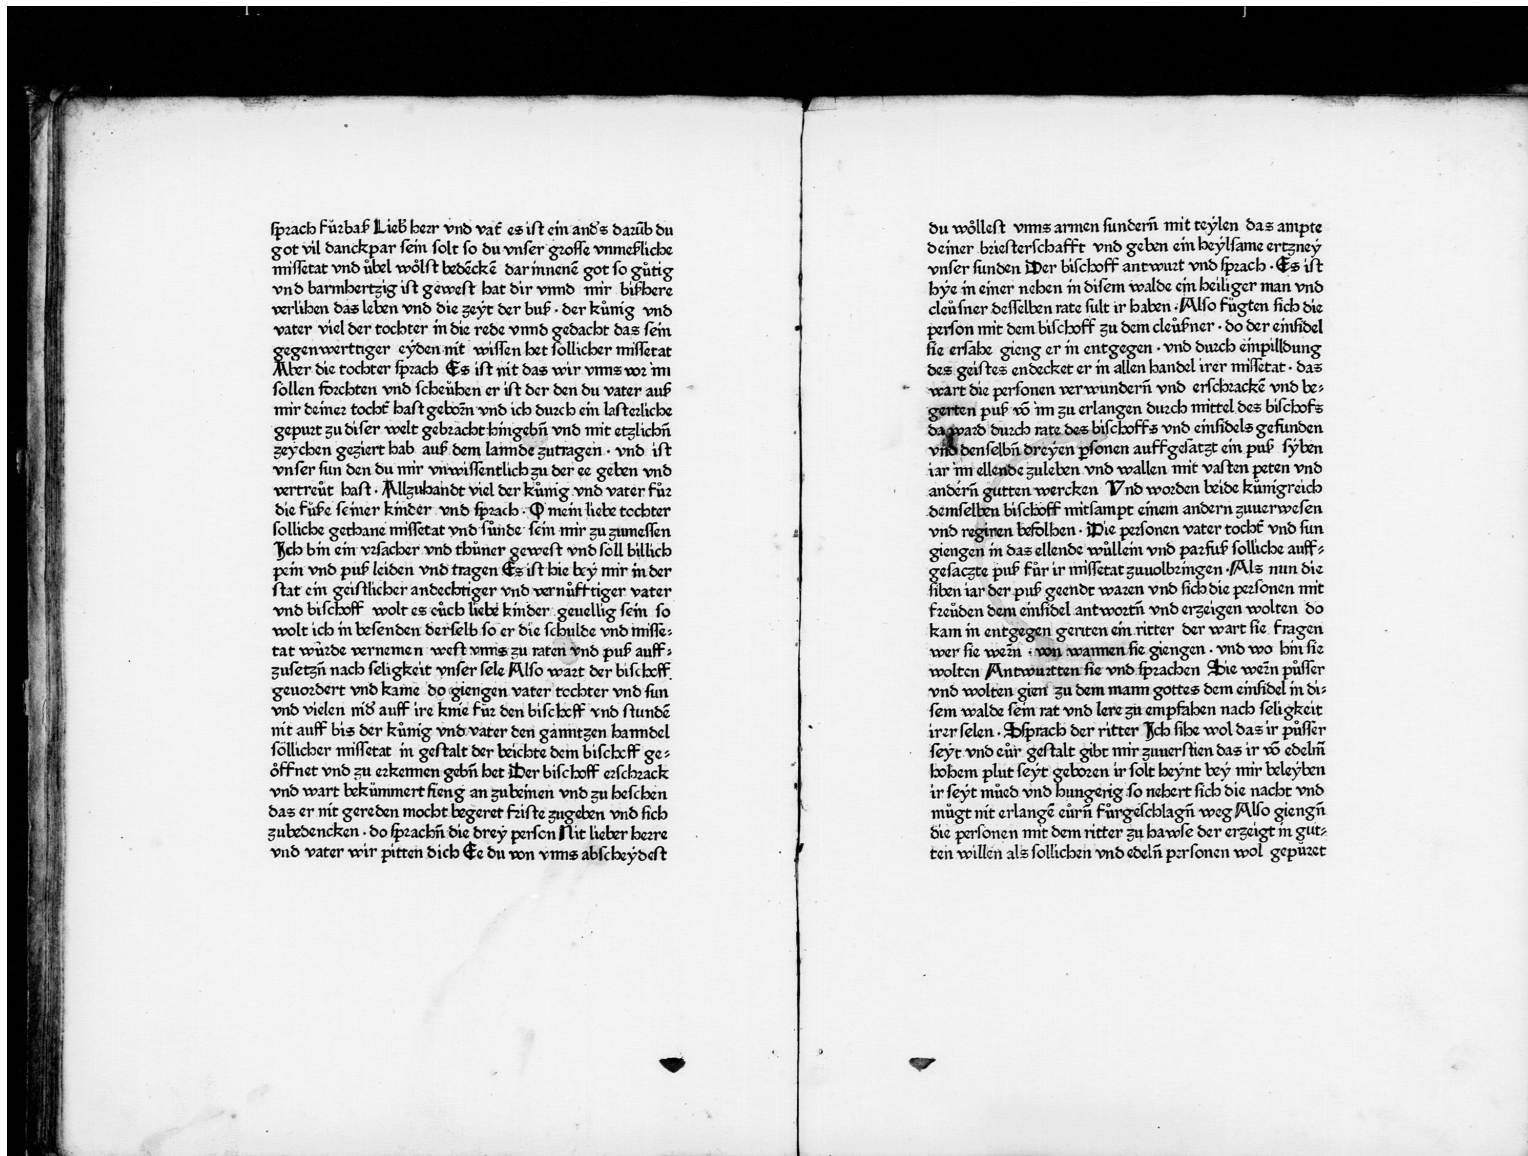 sprach fürbaß Lieb herr vnd vat̃ es ist ein and's darũb du
got vil danckpar sein solt so du vnser grosse vnmeßliche
missetat vnd übel wölst bedẽckẽ dar innenẽ got so gůtig
vnd barmhertzig ist gewest hat dir vnnd mir bißhere
verlihen das leben vnd die zeÿt der buß · der kůnig vnd
vater viel der tochter in die rede vnnd gedacht das sein
gegenwerttiger eÿden nit wissen het sollicher missetat
Aber die tochter sprach Es ist nit das wir vnns vor im
sollen forchten vnd scheühen er ist der den du vater auß
mir deiner tocht̃ hast geborñ vnd ich durch ein lasterliche
gepurt zu diser welt gebracht hingebñ vnd mit etzlichñ
zeychen geziert hab auß dem lannde zutragen · vnd ist
vnser sun den du mir vnwissentlich zu der ee geben vnd
vertreůt hast · Allzuhandt viel der kůnig vnd vater für
die füße seiner kinder vnd sprach · O mein liebe tochter
solliche gethane missetat vnd sůnde sein mir zu zumessen
Ich bin ein vrsacher vnd thůner gewest vnd soll billich
pein vnd puß leiden vnd tragen Es ist hie beÿ mir in der
stat ein geistlicher andechtiger vnd vernůfftiger vater
vnd bischoff wolt es eůch liebẽ kinder geuellig sein so
wolt ich in besenden derselb so er die schulde vnd misse-
tat würde vernemen west vnns zu raten vnd puß auff-
zusetzñ nach seligkeit vnser sele Also wart der bischoff
geuordert vnd kame do giengen vater tochter vnd sun
vnd vielen nid' auff ire knie für den bischoff vnd stundẽ
nit auff bis der kůnig vnd vater den ganntzen hanndel
söllicher missetat in gestalt der beichte dem bischoff ge-
öffnet vnd zu erkennen gebñ het Der bischoff erschrack
vnd wart bekümmert fieng an zu beinen vnd zu heschen
das er nit gereden mocht begeret friste zugeben vnd sich
zubedencken · do sprachñ die dreÿ person Nit lieber herre
vnd vater wir pitten dich Ee du von vnns abscheÿdest
du wöllest vnns armen sunderñ mit teÿlen das ampte
deiner briesterschafft vnd geben ein heÿlsame ertzneÿ
vnser sunden Der bischoff antwurt vnd sprach · Es ist
hÿe in einer nehen in disem walde ein heiliger man vnd
cleůsner desselben rate sult ir haben · Also fůgten sich die
person mit dem bischoff zu dem cleůßner · do der einsidel
sie ersahe gieng er in entgegen · vnd durch einpilldung
des geistes endecket er in allen handel irer missetat · das
wart die personen verwunderñ vnd erschrackẽ vnd be-
gerten puß võ im zu erlangen durch mittel des bischofs
da ward durch rate des bischoffs vnd einsidels gefunden
vnd denselbñ dreÿen psonen auffgesatzt ein puß sÿben
iar im ellende zuleben vnd wallen mit vasten peten vnd
anderñ gutten wercken Vnd worden beide kůnigreich
demselben bischoff mitsampt einem andern zuuerwesen
vnd regiren befolhen · Die personen vater tocht̃ vnd sun
giengen in das ellende wůllein vnd parfuß solliche auff-
gesaczte puß für ir missetat zuuolbringen · Als nun die
siben iar der puß geendt waren vnd sich die personen mit
freůden dem einsidel antwortñ vnd erzeigen wolten do
kam in entgegen geriten ein ritter der wart sie fragen
wer sie werñ · von wannen sie giengen · vnd wo hin sie
wolten Antwurtten sie vnd sprachen Sie werñ půsser
vnd wolten gien zu dem mann gottes dem einsidel in di-
sem walde sein rat vnd lere zu empfahen nach seligkeit
irer selen · Do sprach der ritter Ich sihe wol das ir půsser
seÿt vnd eůr gestalt gibt mir zuuerstien das ir võ edelñ
hohem plut seÿt geboren ir solt heÿnt beÿ mir beleÿben
ir seÿt můed vnd hungerig so nehert sich die nacht vnd
můgt nit erlangẽ eůrñ fůrgeschlagñ weg Also giengñ
die personen mit dem ritter zu hawse der erzeigt in gut-
ten willen als sollichen vnd edelñ personen wol gepůret